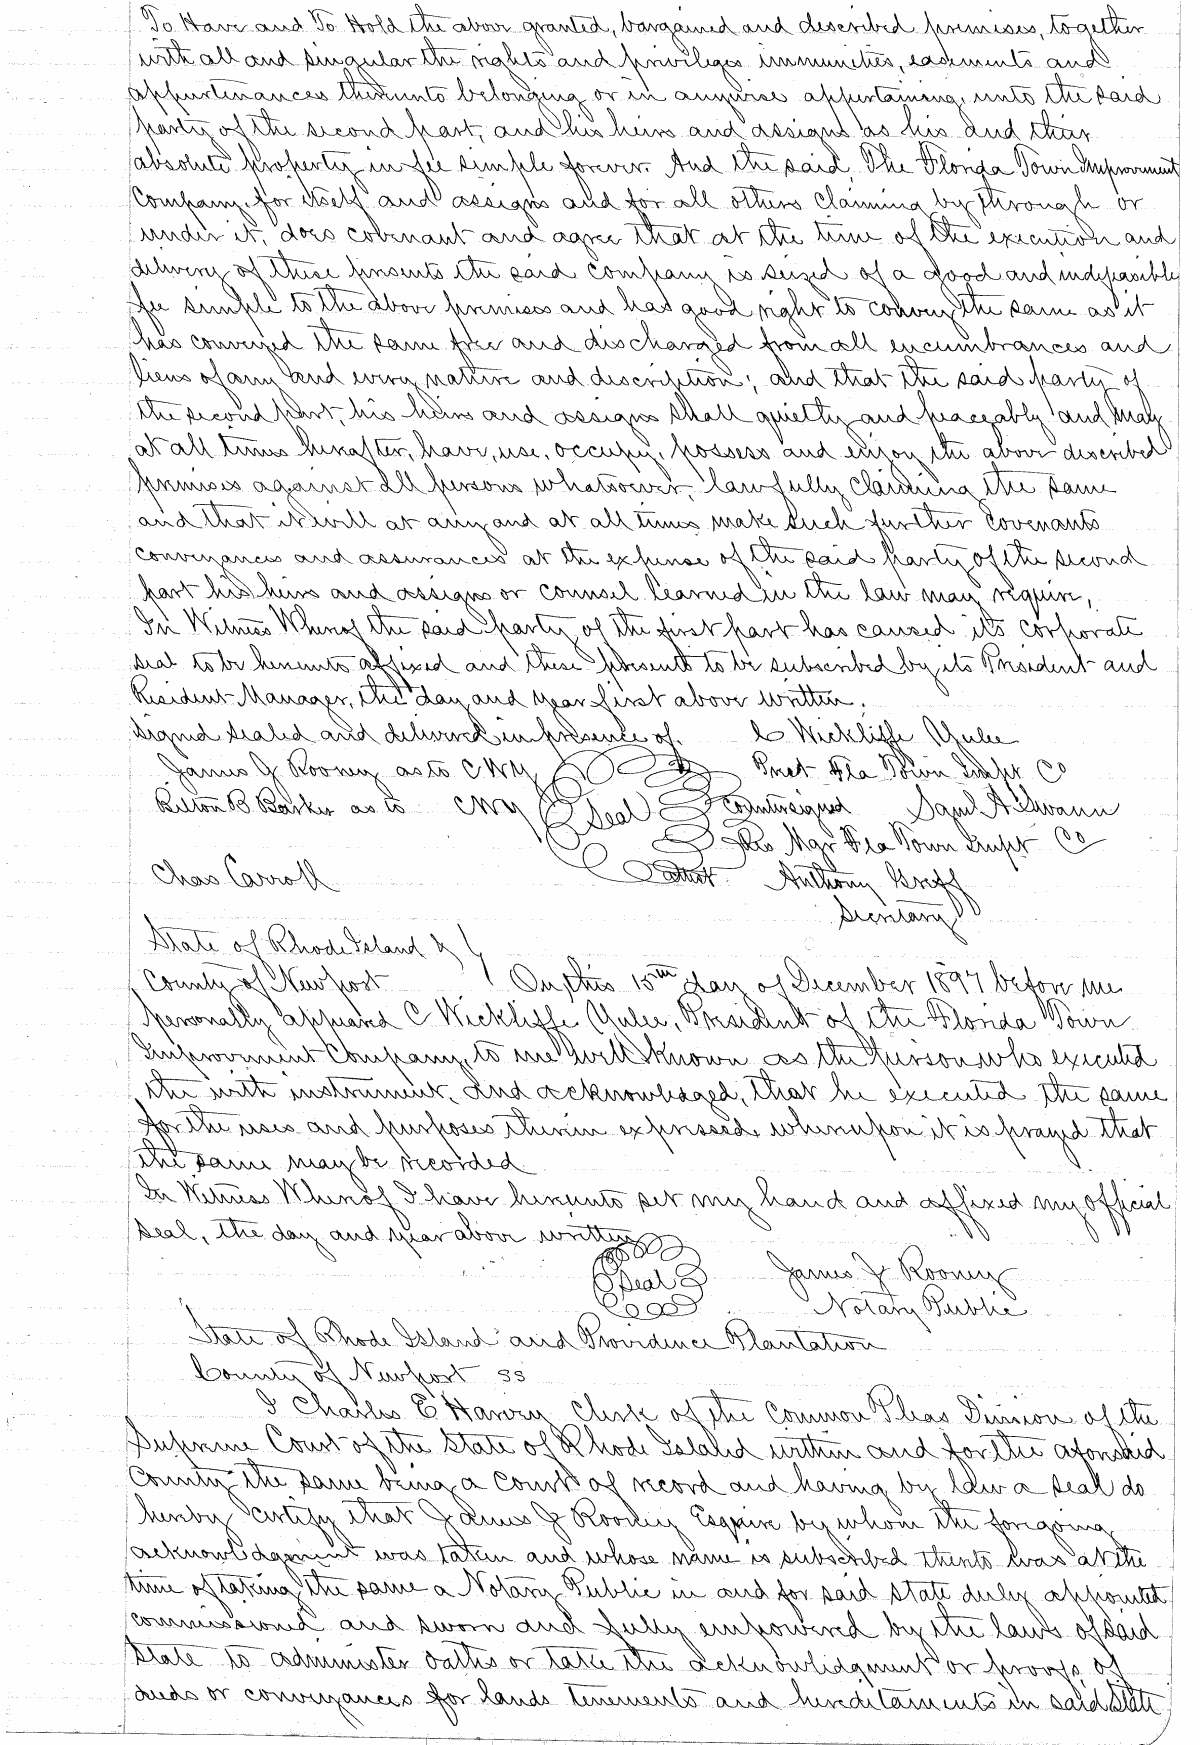 To Have and To Hold the above granted, bargained and described premises, together
with all and singular the rights and privileges immunities, easements and
appurtenances thereunto belonging or in anywise appertaining, unto the said
party of the second part, and his heirs and assigns as his and their
absolute property in fee simple forever. And the said, The Florida Town Improvement
Company, for itself and assigns and for all others claiming by through or
under it, does covenant and agree that at the time of the execution and
delivery of these presents the said Company is seized of a good and indefeasible
fee simple to the above premises and has good right to convey the same as it
has conveyed the same free and discharged from all encumbrances and
liens of any and every nature and description; and that the said party of
the second part, his heirs and assigns shall quietly and peaceably and may
at all times hereafter, have, use, occupy, possess and enjoy the above described
premises against all persons whatsoever, lawfully claiming the same
and that it will at any and at all times make such further covenants
conveyances and assurances at the expense of the said party of the second
part his heirs and assigns or counsel learned in the law may require,
In Witness Whereof the said party of the first part has caused its corporate
seal to be hereunto affixed and these presents to be subscribed by its President and
Resident Manager, the day and year first above written.
Signed sealed and delivered in presence of. C Wickliffe Yulee
James J Rooney as to CWY Prest Fla Town Impt Co
B Barker as to CWY Seal Countersigned Saml A Swann
Res Mgr Fla Town Impt Co
Chas Carroll Attest Anthony
Secretary
State of Rhode Island &
County of Newport On this 15th day of December 1897 before me
personally appeared C Wickliffe Yulee, President of the Florida Town
Improvement Company, to me well known as the person who executed
the with instrument, and acknowledged, that he executed the same
for the uses and purposes therein expressed, whereupon it is prayed that
the same may be recorded
In Witness Whereof I have hereunto set my hand and affixed my official
Seal, the day and year above written
Seal James J Rooney
Notary Public
State of Rhode Island and Providence Plantation
County of Newport SS
I Charles E Harvey Clerk of the Common Pleas Division of the
Supreme Court of the State of Rhode Island within and for the aforesaid
County the same being a Court of record and having by law a seal do
hereby certify that James J Rooney Esquire by whom the foregoing
acknowledgment was taken and whose name is subscribed thereto was at the
time of taking the same a Notary Public in and for said State duly appointed
commissioned and sworn and fully empowered by the laws of said
State to administer oaths or take the acknowledgment or proofs of
deeds or conveyances for lands tenements and hereditaments in said State